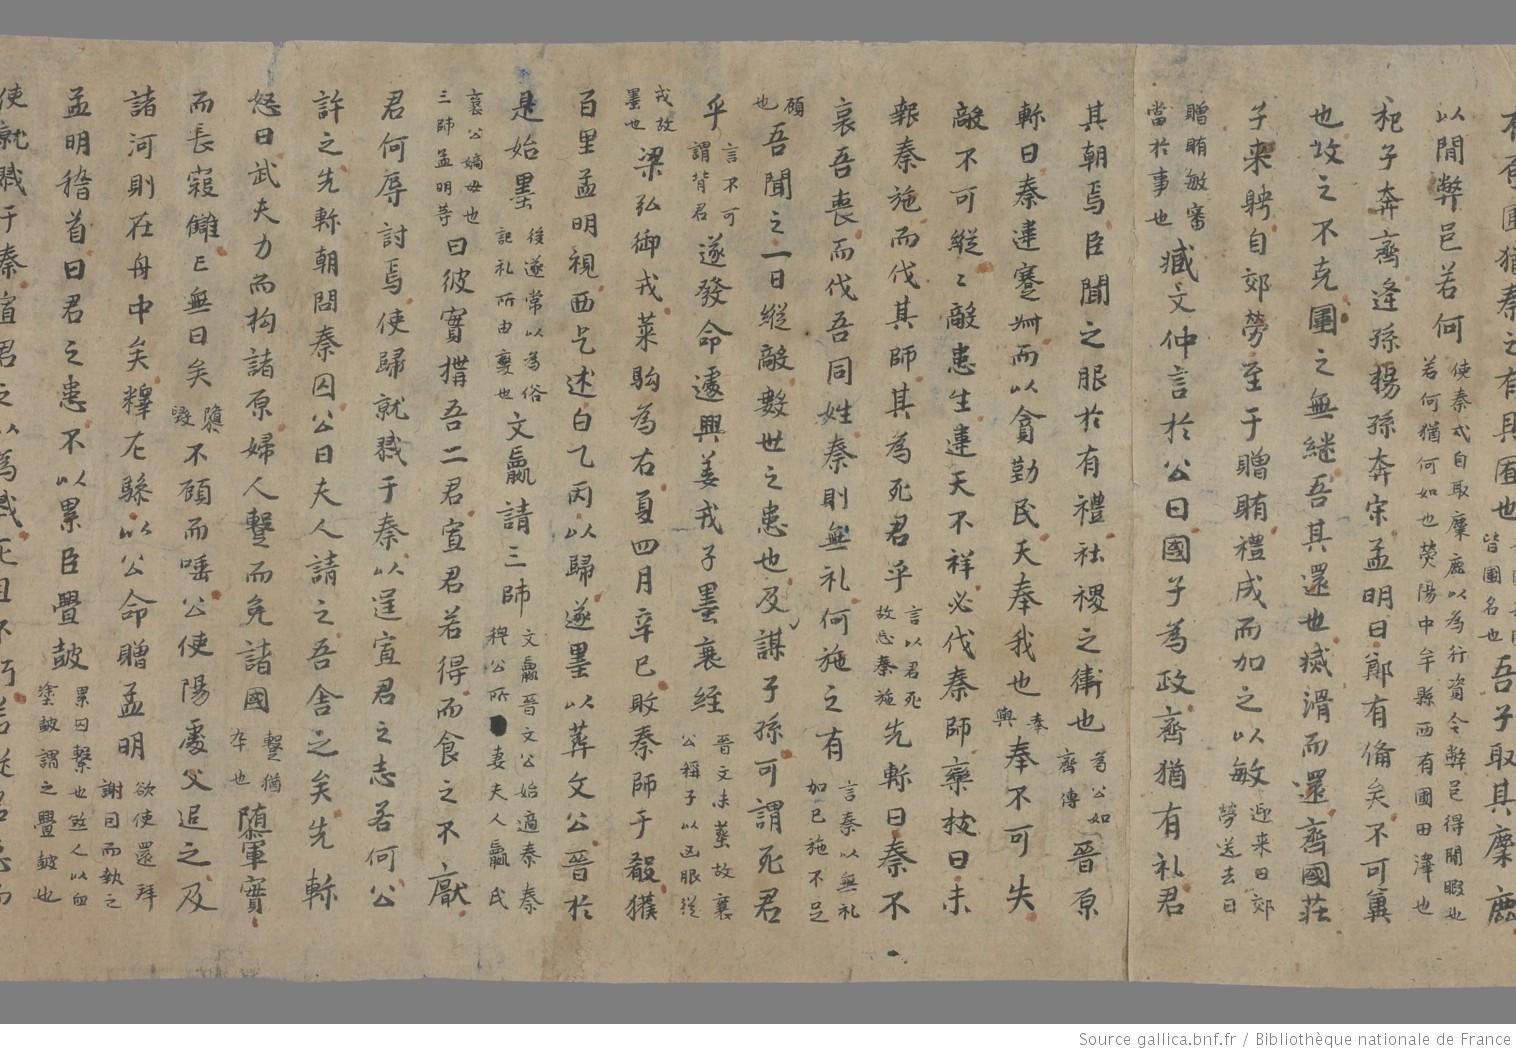 有原圃猶秦之有具囿也皆圃名也吾子取其麋鹿
以閒弊邑若何使秦戍自取麋鹿以為行資令弊邑得閒暇也若何猶何如也熒陽中牟縣西有圃田澤也
杞子奔齊逢孫楊孫奔宋孟明曰鄭有俻矣不可兾
也攻之不克圍之無継吾其還也烕滑而還齊國莊
子来聘自郊勞至于贈賄禮成而加之以敏迎来曰郊勞送去曰
贈賄敏審當於事也臧文仲言於公曰國子為政齊猶有礼君
其朝焉臣聞之服於有禮社禝之衛也為公如齊傳晉原
軫曰秦違蹇州而以貪勤民天奉我也奉與奉不可失
敵不可縱縱敵患生違天不祥必伐秦師欒枝曰未
報秦施而伐其師其為死君乎言以君死故忘秦施先軫曰秦不
哀吾喪而伐吾同姓秦則無礼何施之有言秦以無礼加己施不足
顧也吾聞之一日縱敵數世之患也及謀子孫可謂死君
乎言不可謂背君遂發命遽興姜戎子墨衰絰晉文未葬故襄公稱子以凶服從
戎故墨也梁弘御戎萊駒為右夏四月辛巳敗秦師于殽獲
百里孟明視西乞述白乙丙以歸遂墨以葬文公晉於
是始墨後遂常以為俗記礼所由變也文嬴請三帥文嬴晉文公始適秦秦穆公所妻夫人嬴氏
襄公嫡母也三帥孟明等曰彼實搆吾二君寡君若得而食之不厭
君何辱討焉使歸就戮于秦以逞寡君之志若何公
許之先軫朝問秦囚公曰夫人請之吾舍之矣先軫
怒曰武夫力而拘諸原婦人蹔而免諸國蹔猶卒也隳軍實
而長寇雠亡無日矣隳毀不顧而唾公使陽處父追之及
諸河則在舟中矣釋左驂以公命贈孟明欲使還拜謝因而執之
孟明稽首曰君之惠不以累臣舋皷累囚繫也煞人以血塗皷謂之舋皷也
使就戮于秦寡君之以為戮死且不朽若從君惠而
Source gallica.bnf.fr / Bibliothèque nationale de France